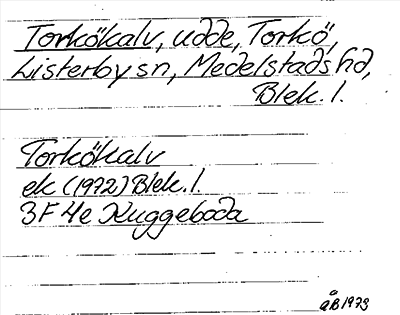 Torkökalv, udde, Torkö,
Listerby sn, Medelstads hd,
Blek. l.
Torkökalv
ek (1972) Blek. l.
3F 4e Kuggeboda
ÅB 1973